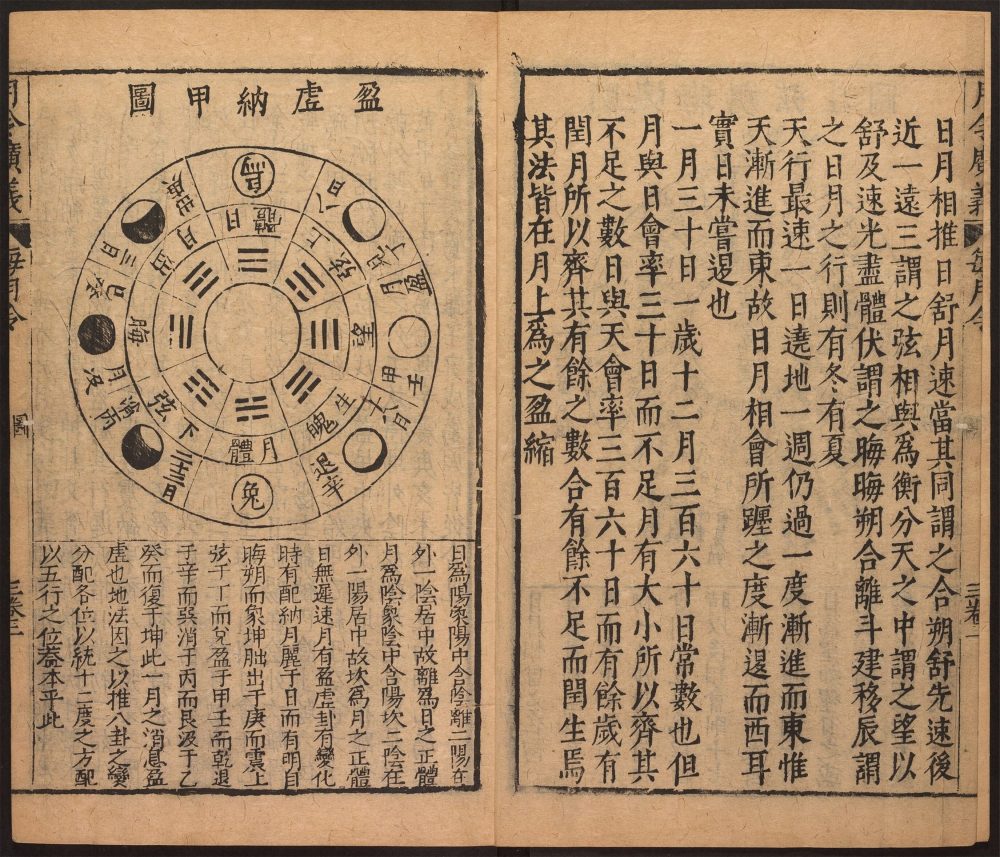 日月相推日舒月速當其同謂之合朔舒先速後
近一遠三謂之弦相與爲衡分天之中謂之望以
舒及速光盡體伏謂之晦晦朔合離斗建移辰謂
之日月之行則有冬有夏
天行最速一日遶地一週仍過一度漸進而東惟
天漸進而東故日月相會所躔之度漸退而西耳
實日未嘗退也
一月三十日一歲十二月三百六十日常數也但
月與日會率三十日而不足月有大小所以齊其
不足之數日與天會率三百六十日而有餘歲有
閏月所以齊其有餘之數合有餘不足而閏生焉
其法皆在月上爲之盈縮
盈虛納甲圖
烏
日體
八日
上弦
丁見
望月
壽
壬甲
十六月
生魄
退辛
兔
月體
二十三月
下弦
消丙
月没
晦
乙癸
三日
月出
出庚
日爲陽象陽中含陰離二陽在
外一陰居中故離爲日之正體
月爲陰象陰中含陽坎二陰在
外一陽居中故坎爲月之正體
日無遲速月有盈虛卦有變化
時有配納月麗于日而有明自
晦朔而象坤朏出于庚而震上
弦于丁而兌盈于甲壬而乾退
于辛而巽消于丙而艮没于乙
癸而復于坤此一月之消息盈
虛也地法因之以推八卦之變
分配各位以統十二度之方配
以五行之位蓋本乎此
月令廣義
每月令
圖